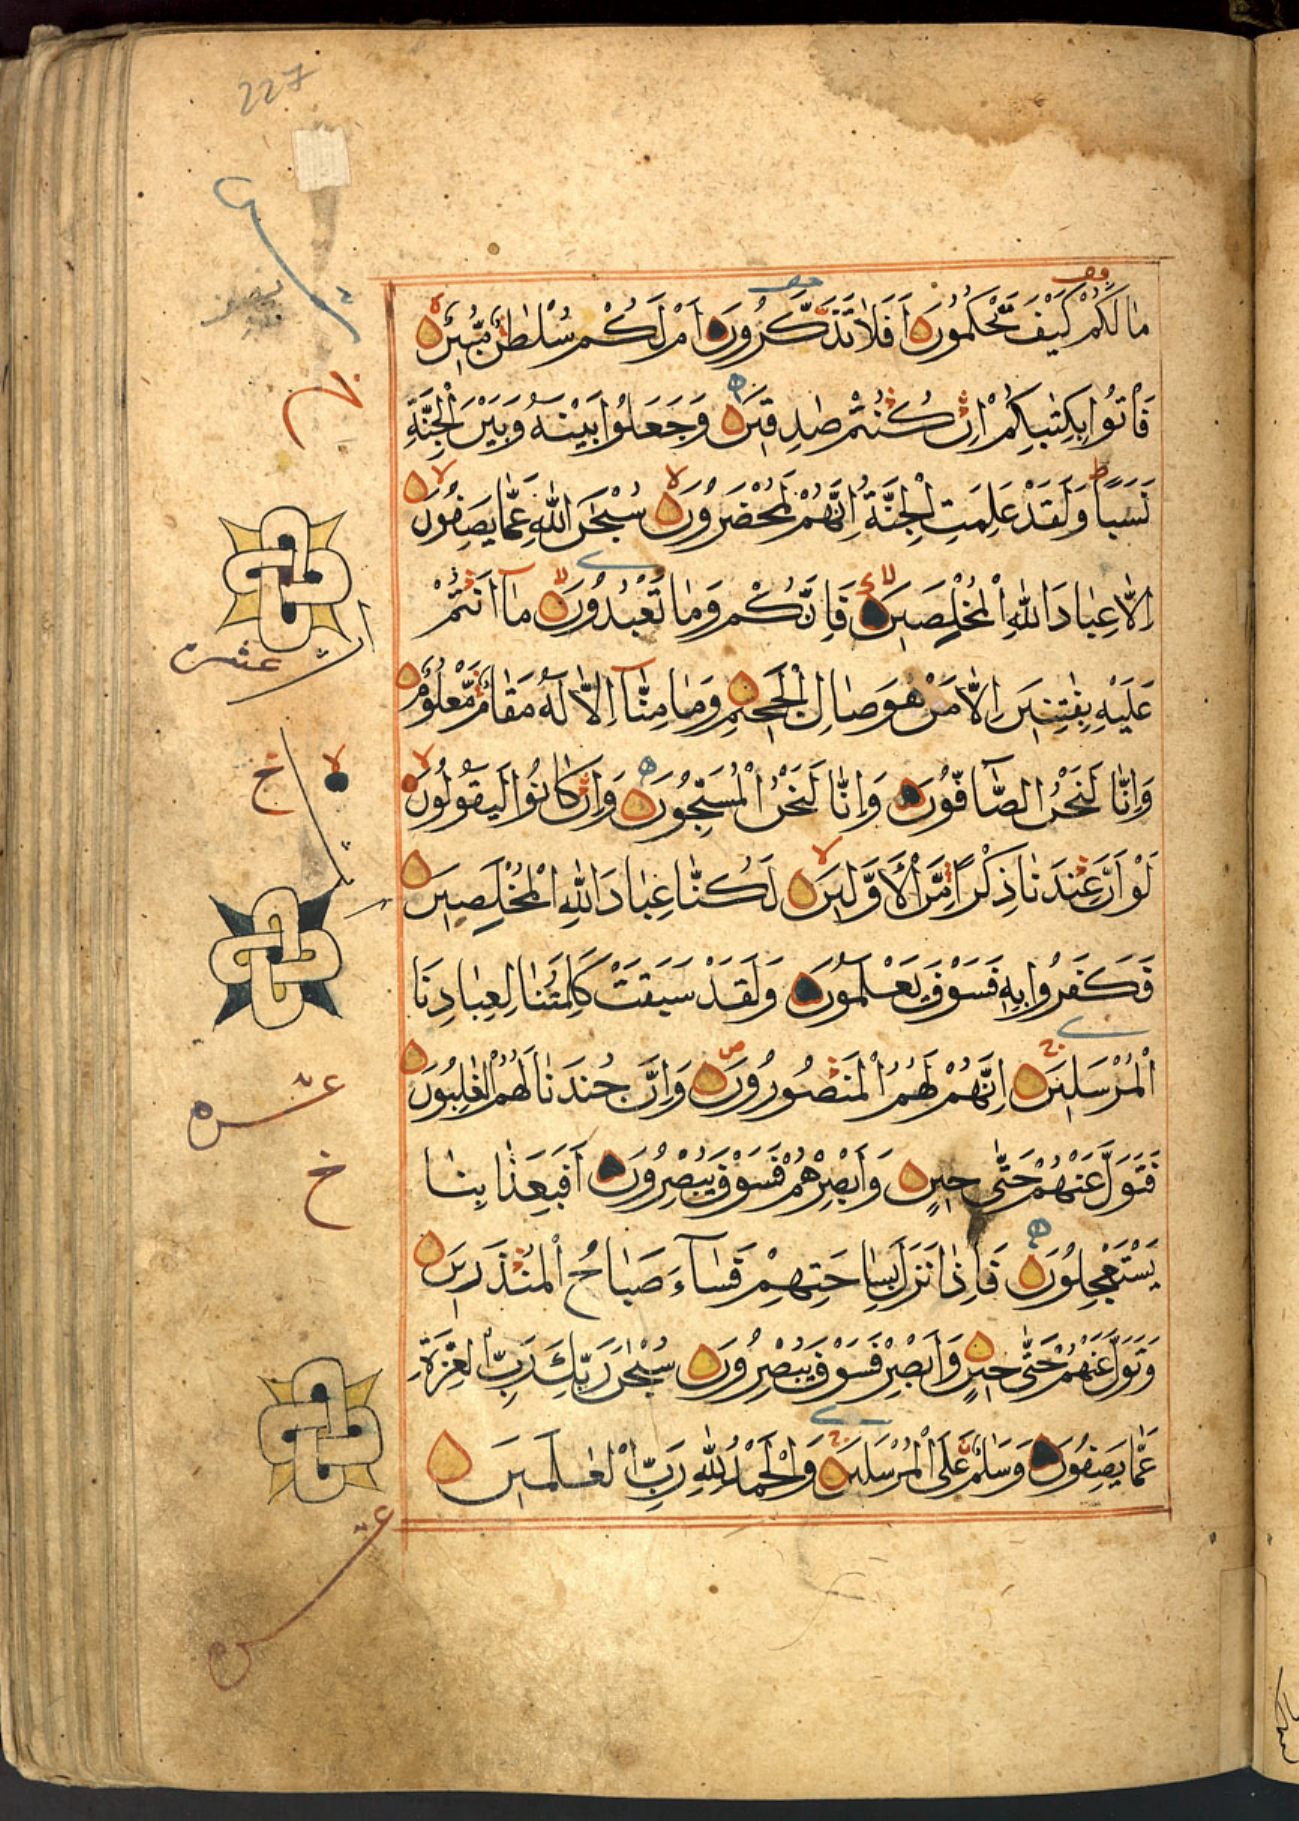 227
مَا لَكُمْ كَيْفَ تَحْكُمُونَ أَفَلَا تَذَكَّرُونَ أَمْ لَكُمْ سُلْطٰنٌ مُّبِينٌ
فَأْتُوا بِكِتٰبِكُمْ إِنْ كُنْتُمْ صٰدِقِينَ وَجَعَلُوا بَيْنَهُ وَبَيْنَ الْجِنَّةِ
نَسَبًا وَلَقَدْ عَلِمَتِ الْجِنَّةُ إِنَّهُمْ لَمُحْضَرُونَ سُبْحٰنَ اللّٰهِ عَمَّا يَصِفُونَ
إِلَّا عِبَادَ اللّٰهِ الْمُخْلَصِينَ فَإِنَّكُمْ وَمَا تَعْبُدُونَ مَا أَنْتُمْ
عَلَيْهِ بِفٰتِنِينَ إِلَّا مَنْ هُوَ صَالِ الْجَحِيمِ وَمَا مِنَّا إِلَّا لَهُ مَقَامٌ مَّعْلُومٌ
وَإِنَّا لَنَحْنُ الصَّافُّونَ وَإِنَّا لَنَحْنُ الْمُسَبِّحُونَ وَإِنْ كَانُوا لَيَقُولُونَ
لَوْ أَنَّ عِنْدَنَا ذِكْرًا مِّنَ الْأَوَّلِينَ لَكُنَّا عِبَادَ اللّٰهِ الْمُخْلَصِينَ
فَكَفَرُوا بِهِ فَسَوْفَ يَعْلَمُونَ وَلَقَدْ سَبَقَتْ كَلِمَتُنَا لِعِبَادِنَا
الْمُرْسَلِينَ إِنَّهُمْ لَهُمُ الْمَنْصُورُونَ وَإِنَّ جُنْدَنَا لَهُمُ الْغٰلِبُونَ
فَتَوَلَّ عَنْهُمْ حَتّٰى حِينٍ وَأَبْصِرْهُمْ فَسَوْفَ يُبْصِرُونَ أَفَبِعَذَابِنَا
يَسْتَعْجِلُونَ فَإِذَا نَزَلَ بِسَاحَتِهِمْ فَسَاءَ صَبَاحُ الْمُنْذَرِينَ
وَتَوَلَّ عَنْهُمْ حَتّٰى حِينٍ وَأَبْصِرْ فَسَوْفَ يُبْصِرُونَ سُبْحٰنَ رَبِّكَ رَبِّ الْعِزَّةِ
عَمَّا يَصِفُونَ وَسَلٰمٌ عَلَى الْمُرْسَلِينَ وَالْحَمْدُ لِلّٰهِ رَبِّ الْعٰلَمِينَ
عشره
خ
خ